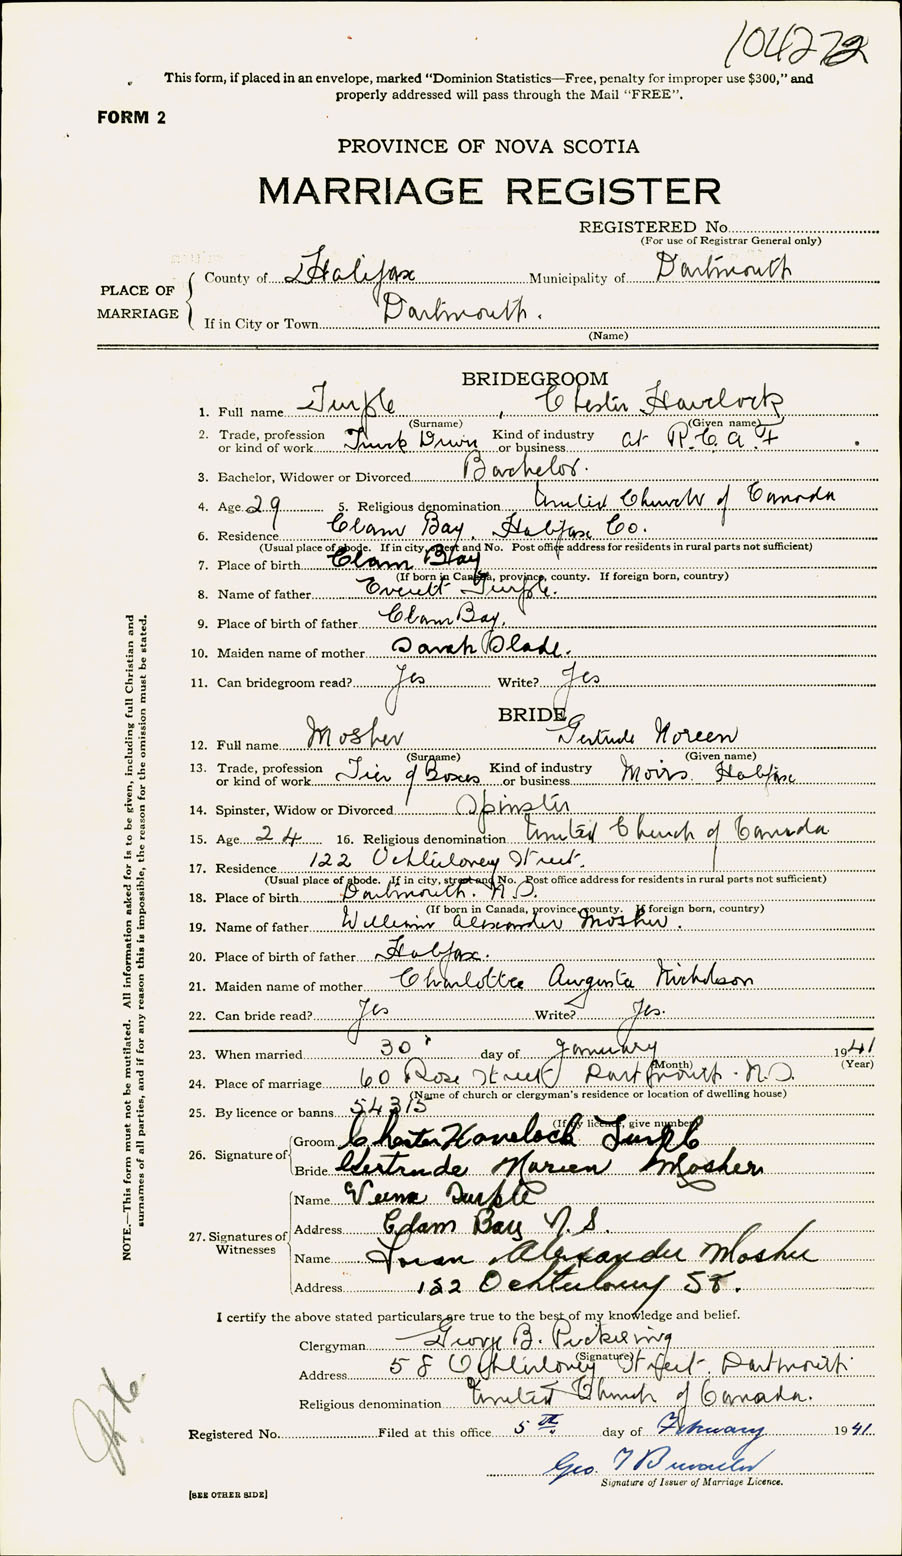 104272
This form, if placed in an envelope, marked “Dominion Statistics—Free, penalty for improper use $300,” and
properly addressed will pass through the Mail “FREE”.
FORM 2
PROVINCE OF NOVA SCOTIA
MARRIAGE REGISTER
REGISTERED No.
(For use of Registrar General only)
PLACE OF MARRIAGE
County of Halifax Municipality of Dartmouth
If in City or Town Dartmouth.
(Name)
BRIDEGROOM
1. Full name Turple, Chester Havelock
(Surname) (Given name)
2. Trade, profession or kind of work Truck Driver Kind of industry or business at R.C.A.F.
3. Bachelor, Widower or Divorced Bachelor.
4. Age 29 5. Religious denomination United Church of Canada
6. Residence Clam Bay, Halifax Co.
(Usual place of abode. If in city, street and No. Post office address for residents in rural parts not sufficient)
7. Place of birth Clam Bay
(If born in Canada, province, county. If foreign born, country)
8. Name of father Everett Turple.
9. Place of birth of father Clam Bay.
10. Maiden name of mother Sarah Slade.
11. Can bridegroom read? Yes Write? Yes
BRIDE
12. Full name Mosher Gertrude Noreen
(Surname) (Given name)
13. Trade, profession or kind of work Tier of Boxes Kind of industry or business Moirs Halifax
14. Spinster, Widow or Divorced Spinster
15. Age 24 16. Religious denomination United Church of Canada
17. Residence 122 Ochterloney Street.
(Usual place of abode. If in city, street and No. Post office address for residents in rural parts not sufficient)
18. Place of birth Dartmouth. N.S.
(If born in Canada, province, county. If foreign born, country)
19. Name of father William Alexander Mosher.
20. Place of birth of father Halifax.
21. Maiden name of mother Charlottee Augusta Nicholson
22. Can bride read? Yes Write? Yes.
23. When married 30 day of January 1941
(Month) (Year)
24. Place of marriage 60 Rose Street Dartmouth. N.S.
(Name of church or clergyman's residence or location of dwelling house)
25. By licence or banns 54315
(If by licence, give number)
26. Signature of Groom Chester Havelock Turple
Bride Gertrude Marien Mosher
27. Signatures of Witnesses
Name Turple
Address Clam Bay N.S.
Name Alexander Mosher
Address 122 Ochterloney St.
I certify the above stated particulars are true to the best of my knowledge and belief.
Clergyman George B. Pickering
(Signature)
Address 58 Ochterloney Street. Dartmouth
Religious denomination United Church of Canada.
Registered No. Filed at this office 5th day of February 1941.
Geo. T
Signature of Issuer of Marriage Licence.
[SEE OTHER SIDE]
NOTE.—This form must not be mutilated. All information asked for is to be given, including full Christian and
surnames of all parties, and if for any reason this is impossible, the reason for the omission must be stated.